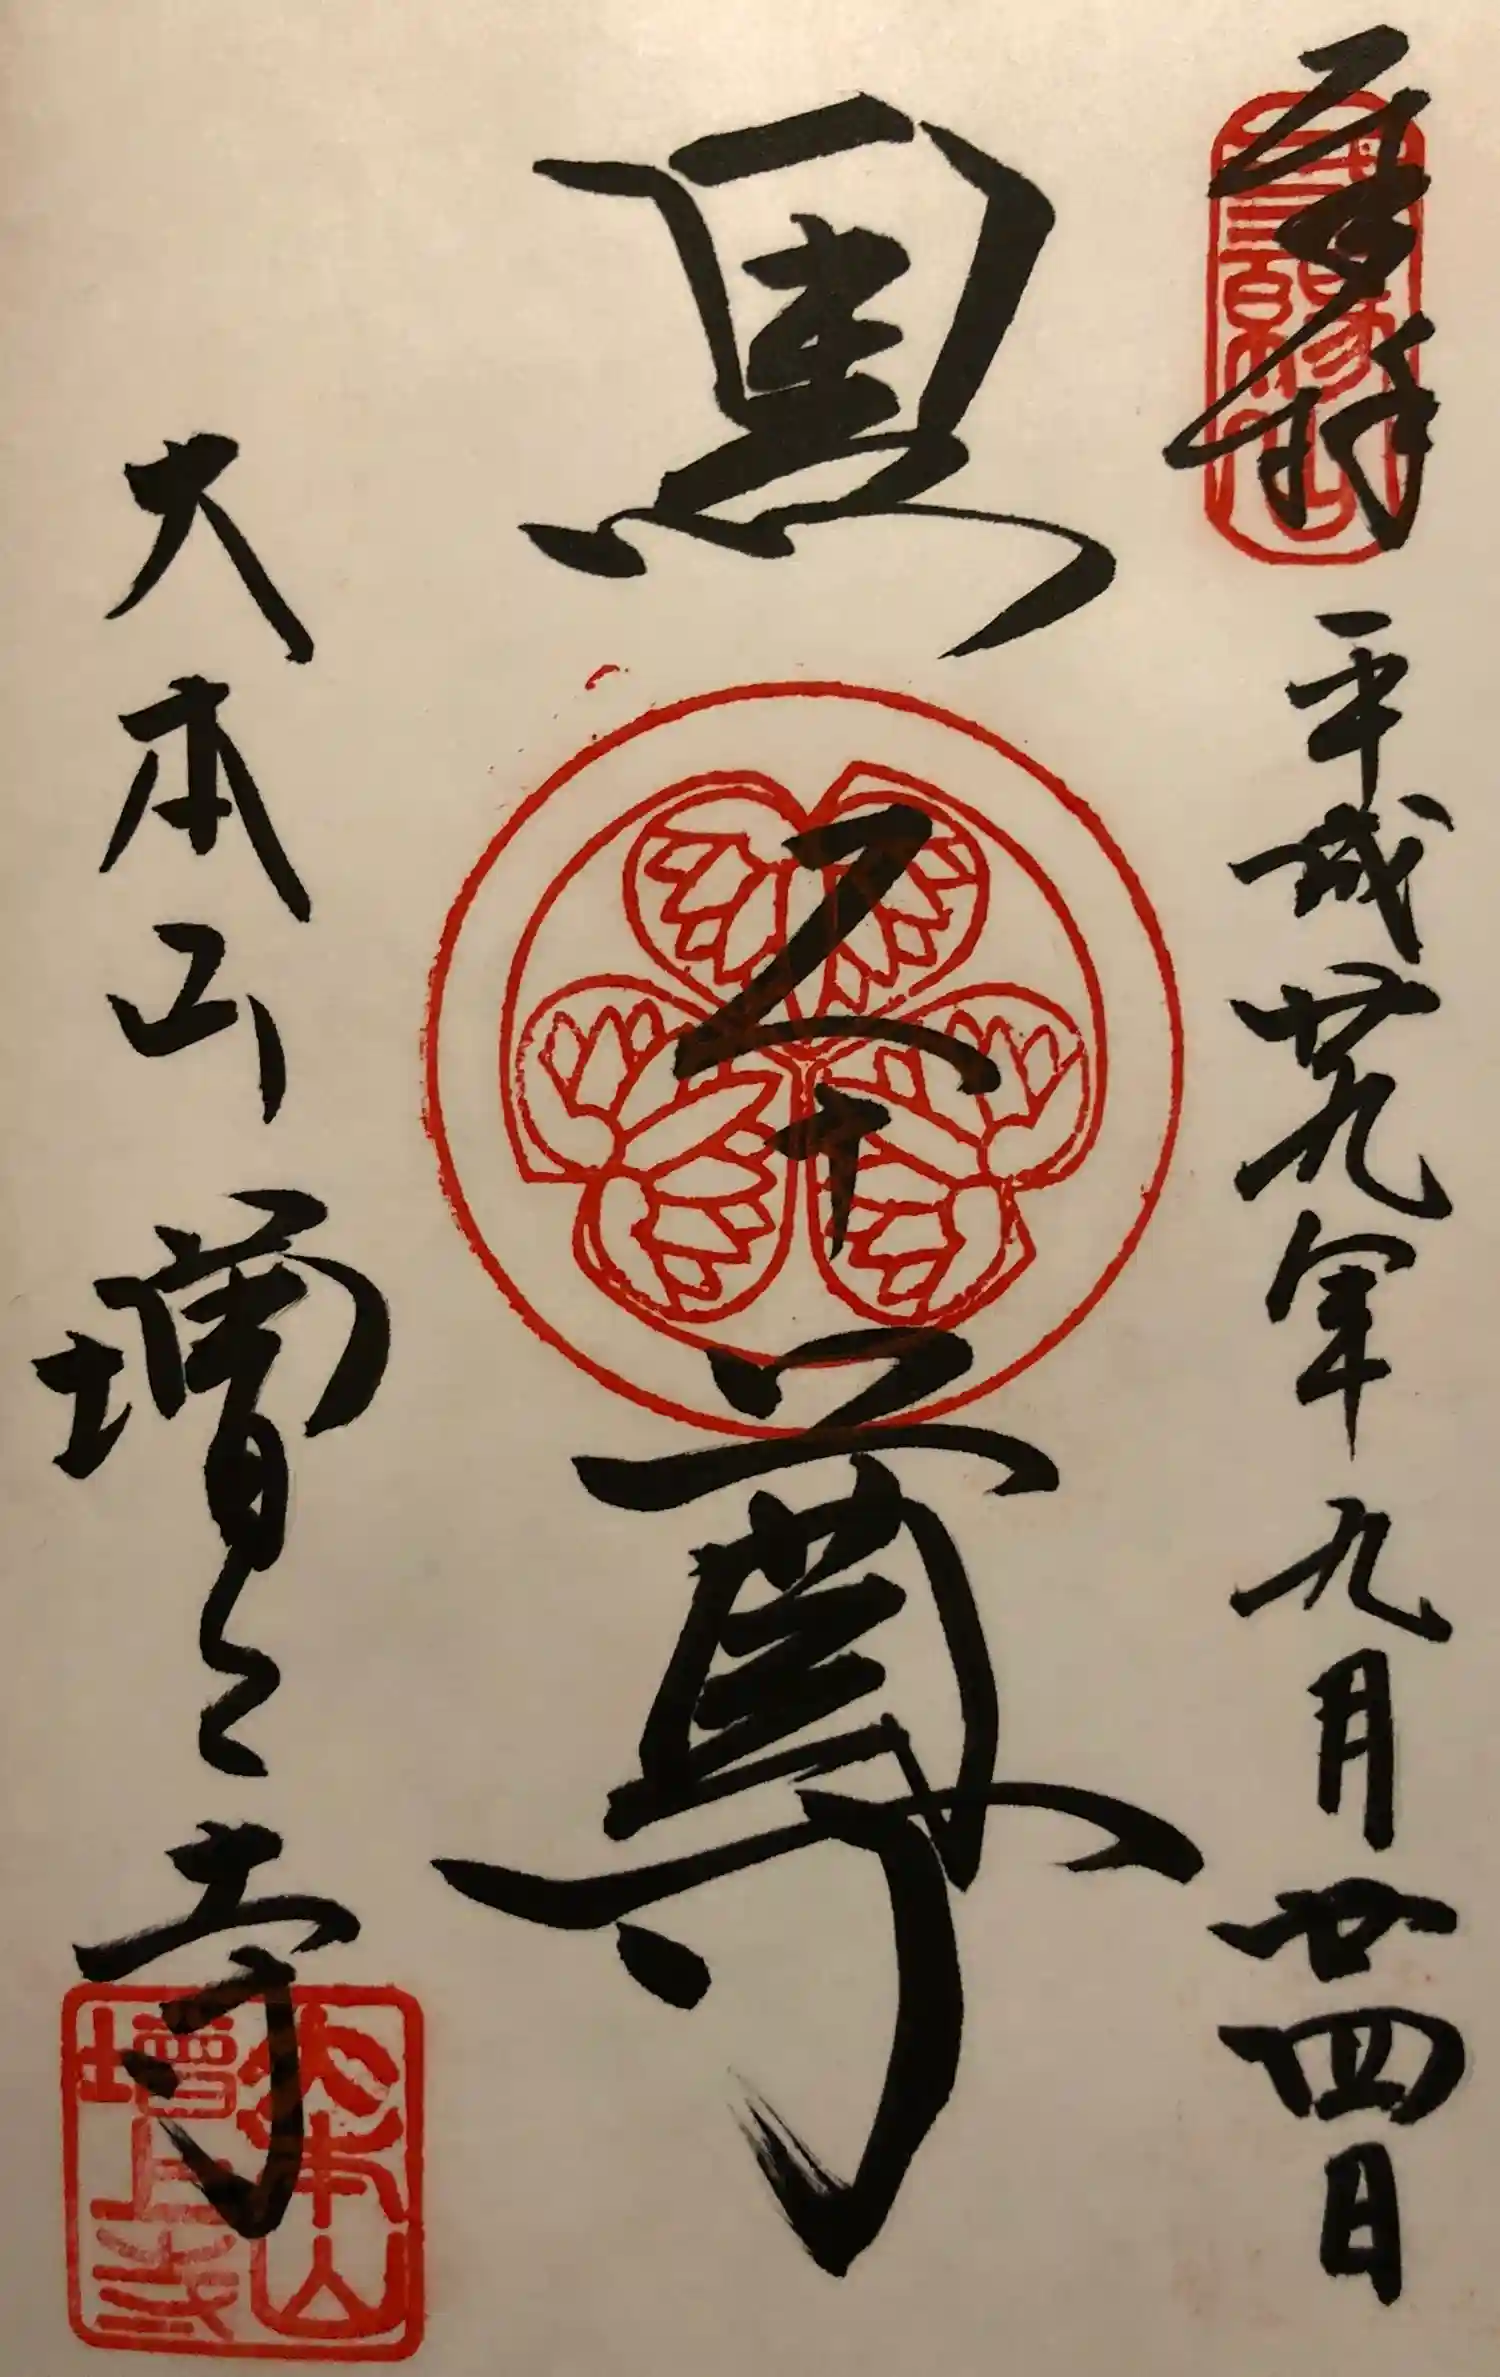 奉拝 平成廿九年九月廿四日
三縁山
黒本尊
大本山 増上寺
大本山
増上寺